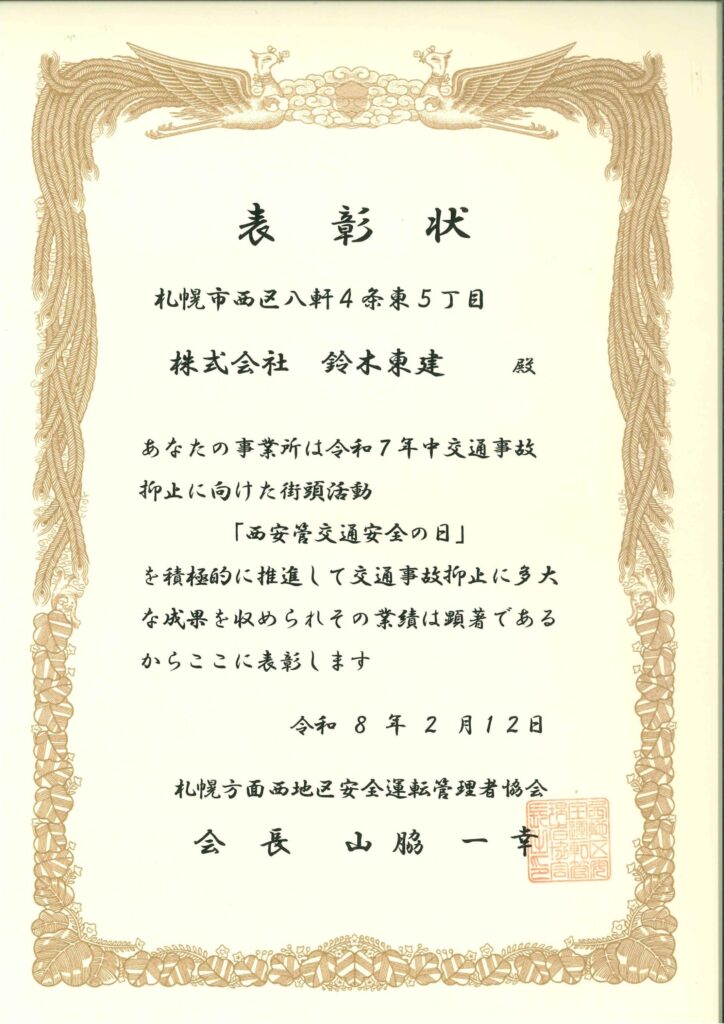 表彰状
札幌市西区八軒4条東5丁目
株式会社 鈴木東建 殿
あなたの事業所は令和7年中交通事故
抑止に向けた街頭活動
「西安管交通安全の日」
を積極的に推進して交通事故抑止に多大
な成果を収められその業績は顕著である
からここに表彰します
令和 8 年 2 月12日
札幌方面西地区安全運転管理者協会
会長 山脇一幸